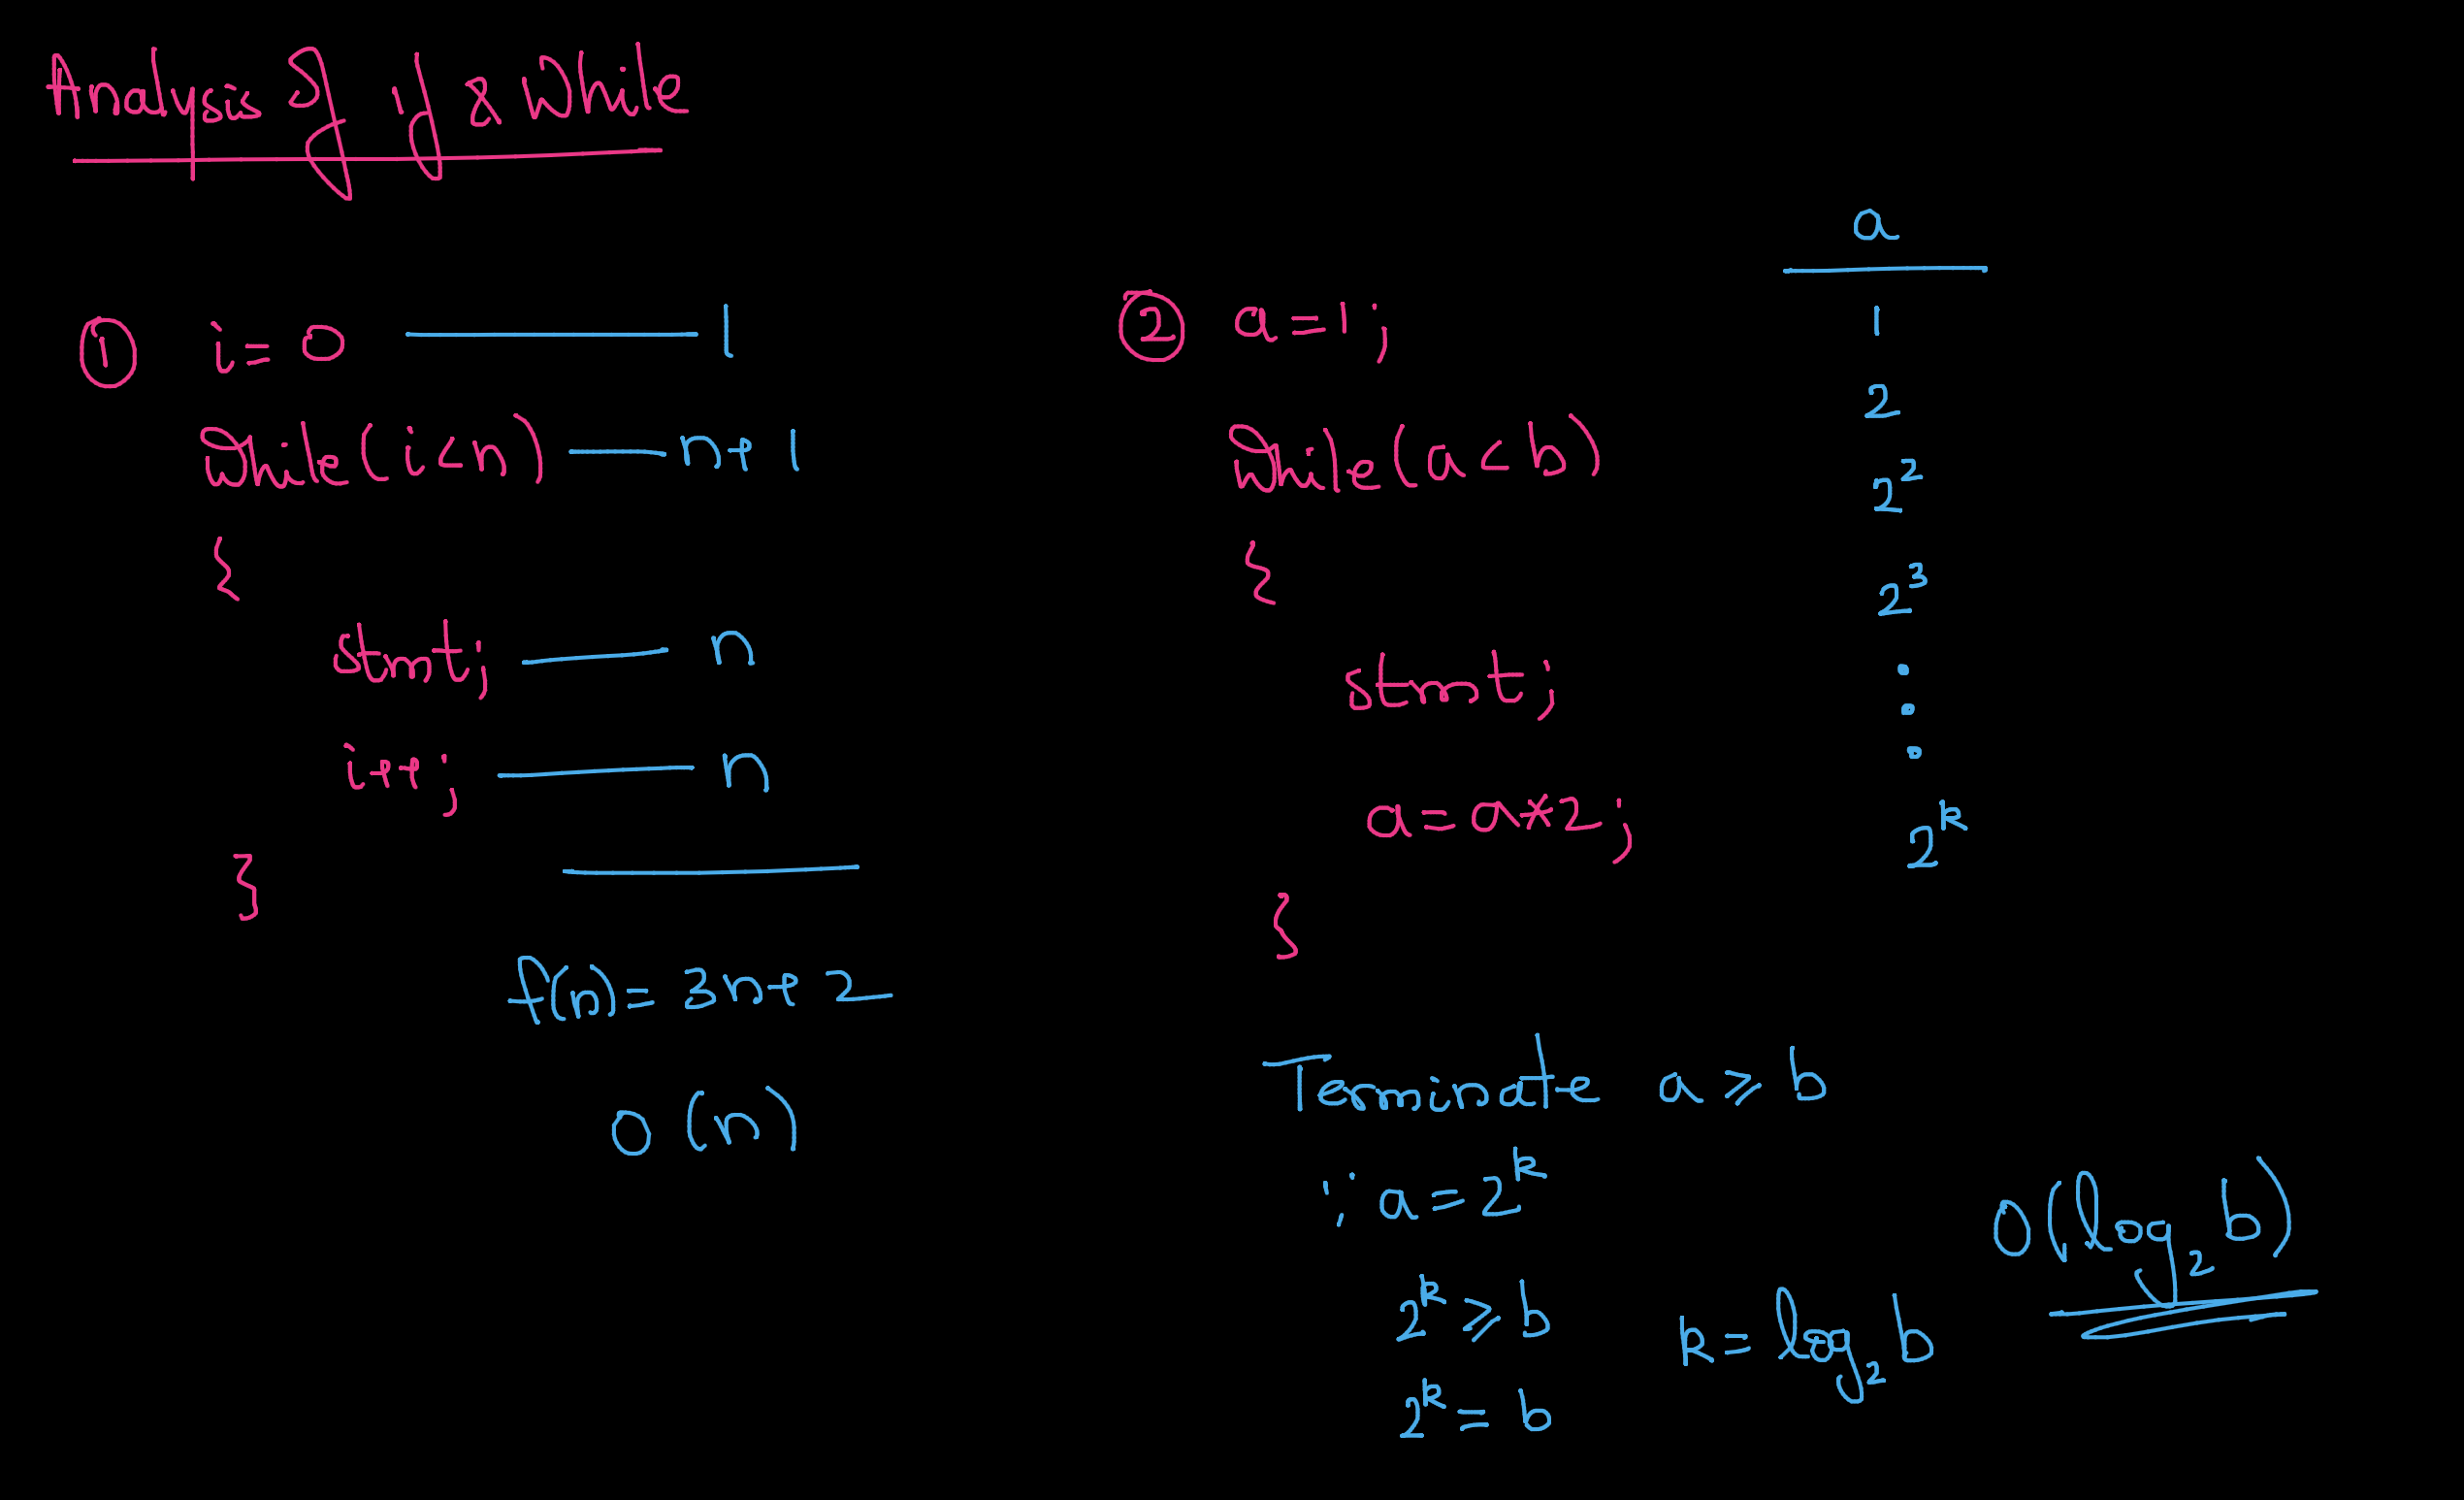 Analysis of if & While
① i=0 — 1
While(i<n) — n+1
{
stmt; — n
i++; — n
}
f(n)= 3n+2
O(n)
② a=1;
While(a<b)
{
stmt;
a=a*2;
}
a
1
2
2²
2³
.
.
.
2ᵏ
Terminate a ⩾ b
∵ a=2ᵏ
2ᵏ ⩾ b
2ᵏ = b
k=log₂b
O(log₂b)